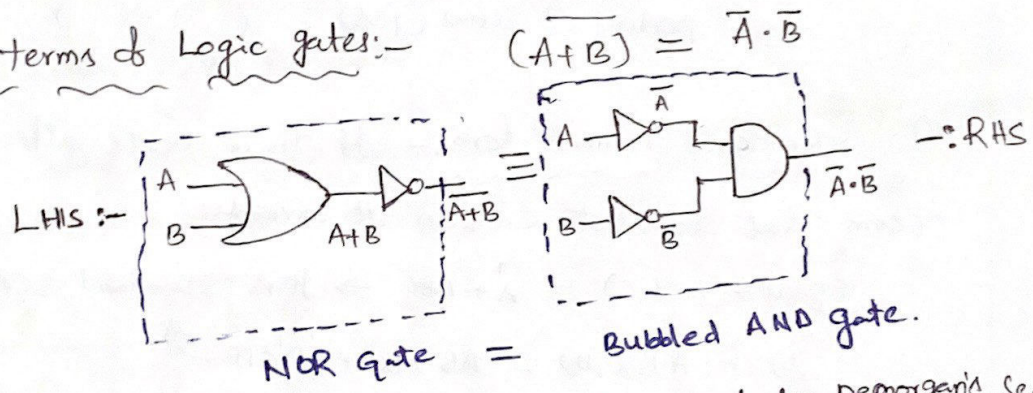 terms of Logic gates:-
(A+B)̅ = A̅·B̅
LHS :-
A
B
A+B
A̅+̅B̅
≡
A
A̅
B
B̅
A̅·B̅
-: RHS
NOR Gate = Bubbled AND gate.
Demorgan's